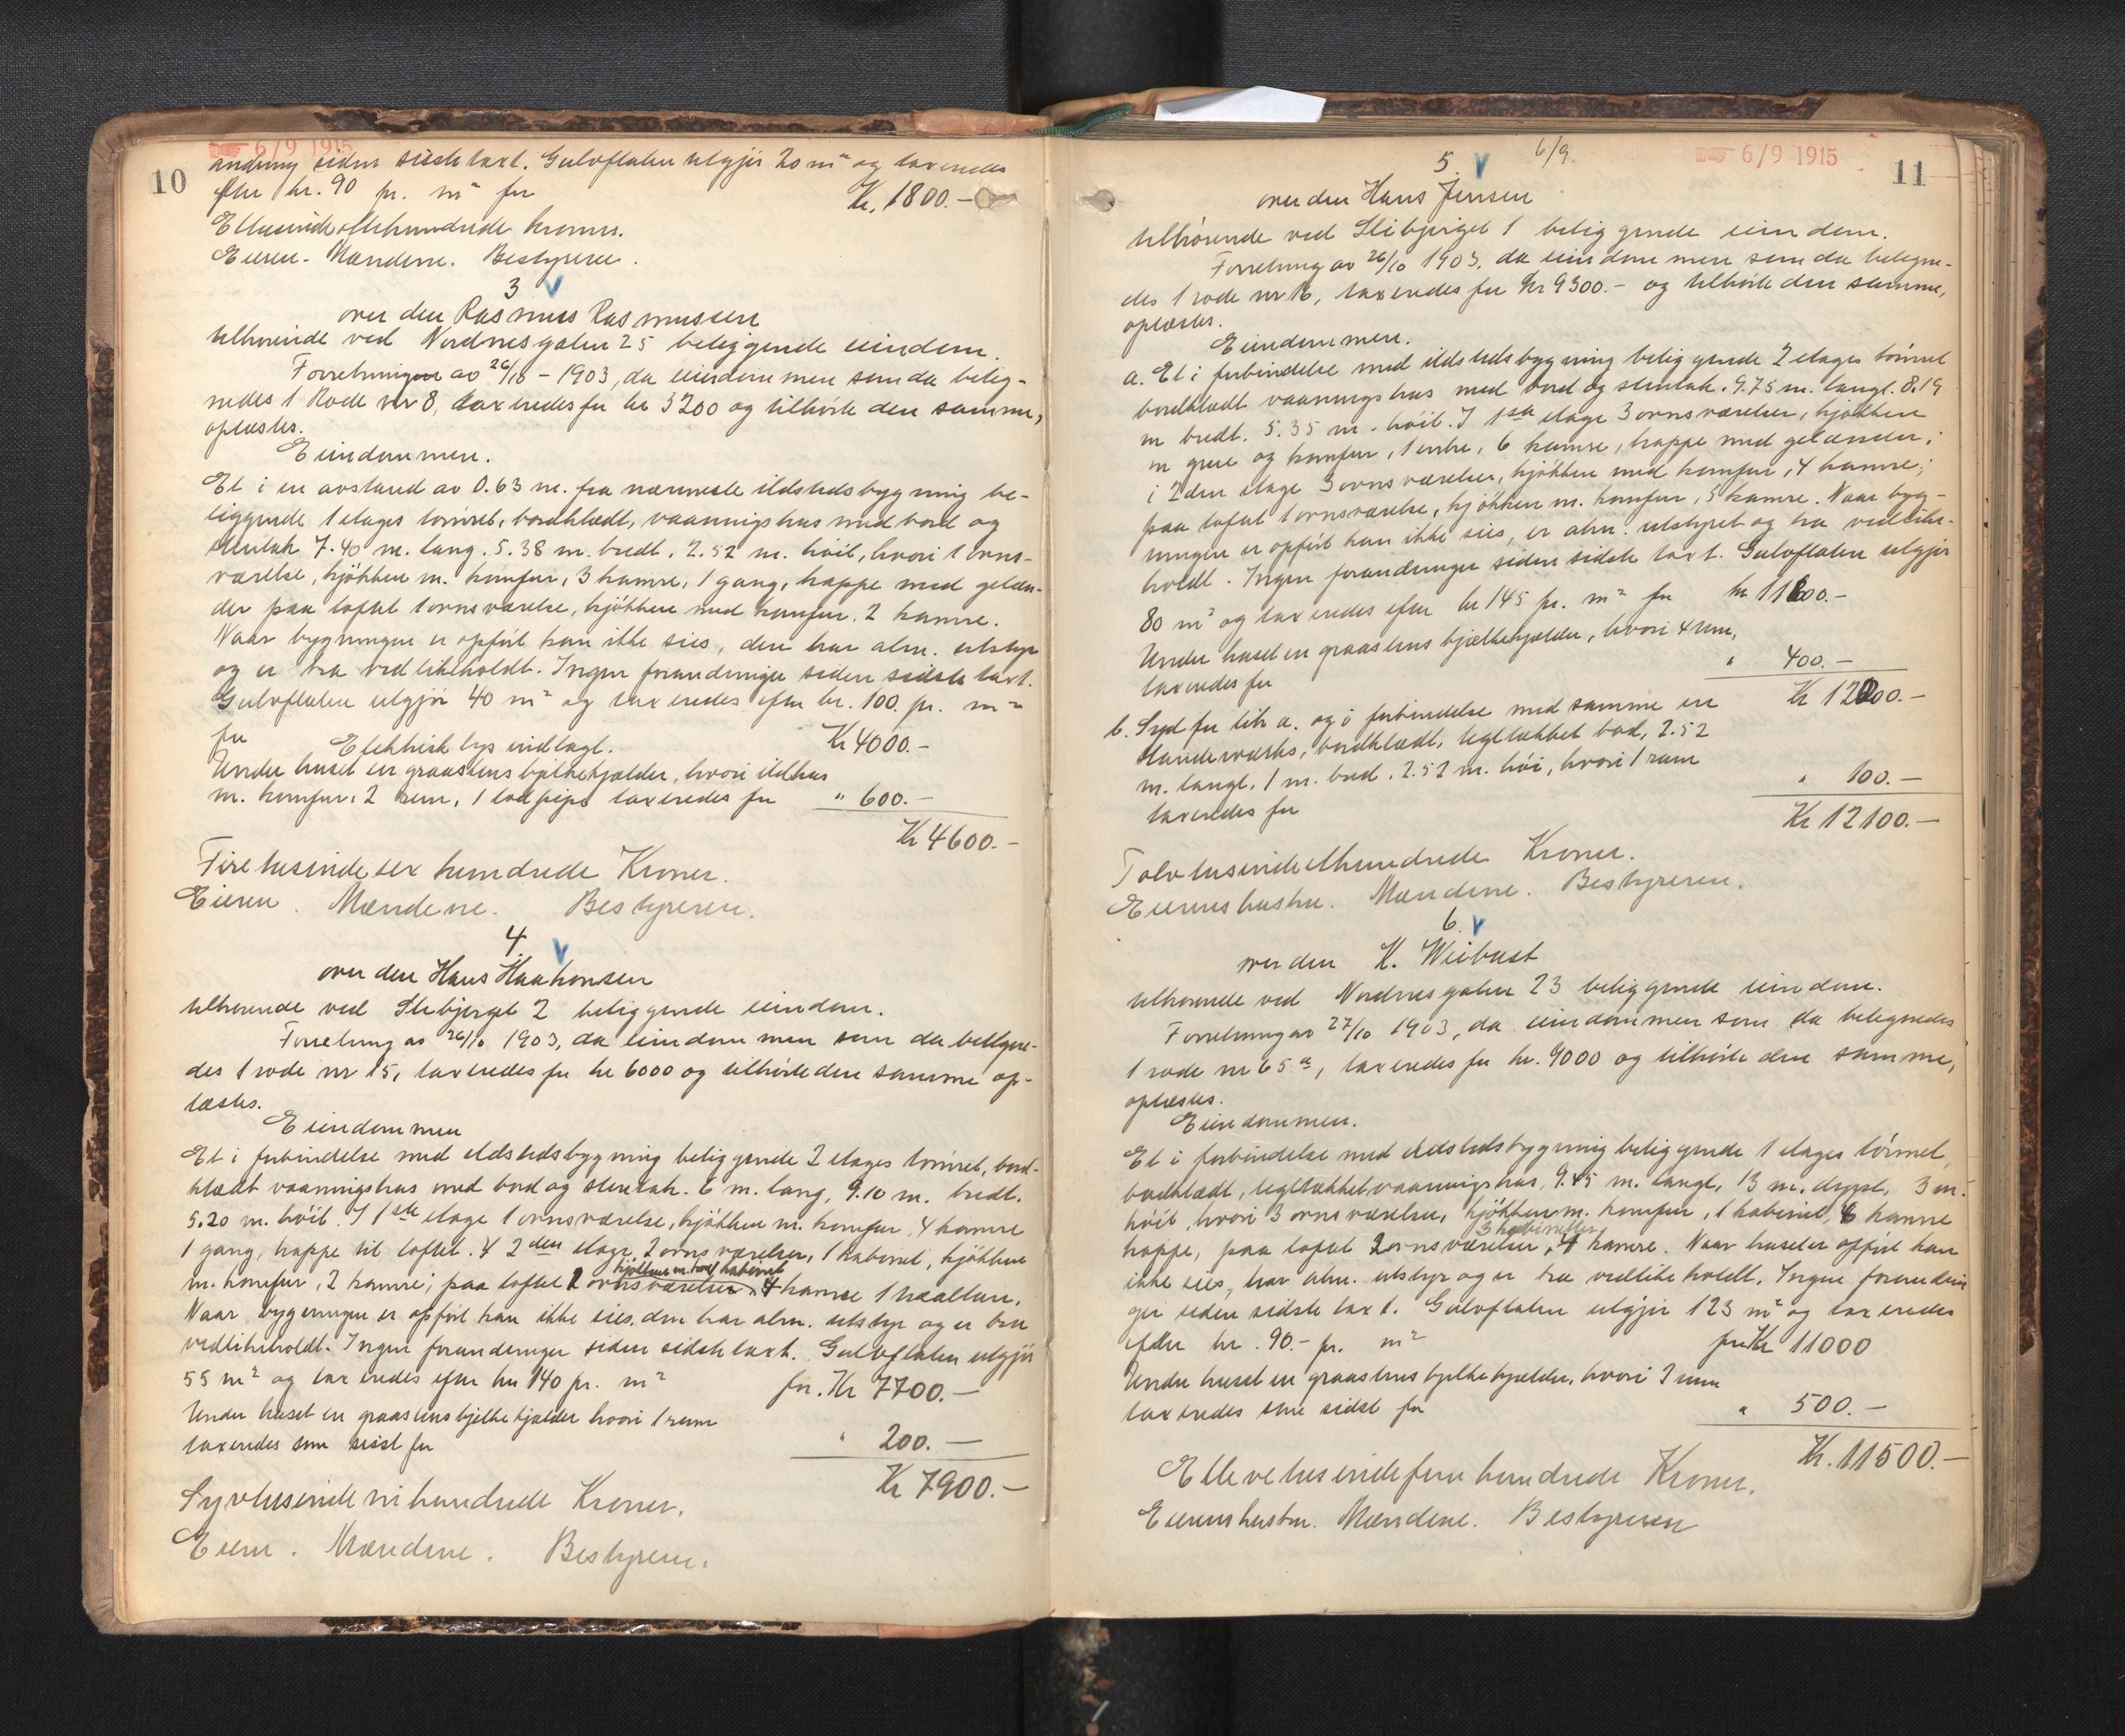 6/9 1915
10
andring siden sidste taxt. Gulvflaten utgjör 20 m² og taxeredes
efter kr. 90 pr. m² for Kr. 1800.-
Ettusindeottehundrede kroner.
Eieren. Mændene. Bestyreren.
3 V
over den Rasmus Rasmussen
tilhörende ved Nordnesgaten 25 beliggende eiendom.
Forretningen av 26/10 - 1903, da eiendommen som da beteg-
nedes 1 Rode nr 8, taxeredes for kr 3200 og tilhörte den samme,
oplæstes.
Eiendommen.
Et i en avstand av 0.63 m. fra nærmeste ildstedsbygning be-
liggende 1 etages tömret, bordklædt, vaaningshus med bord og
stentak 7.40 m. lang. 5.38 m. bredt. 2.52 m. höit, hvori 1 ovns-
værelse, kjökken m. komfur, 3 kamre, 1 gang, trappe med gelæn-
der paa loftet 1 ovnsværelse, kjökken med komfur. 2 kamre.
Naar bygningen er opfört kan ikke sies, den har alm. utstyr
og er bra vedlikeholdt. Ingen forandringer siden sidste taxt.
Gulvflaten utgjör 40 m² og taxeredes efter kr. 100. pr. m²
for Elektrisk lys indlagt. Kr 4000.-
Under huset en graastens bjelkekjælder, hvori ildhus
m. komfur, 2 rum, 1 lodpipe taxeredes for " 600.-
Kr 4600.-
Firetusindesex hundrede Kroner.
Eieren. Mændene. Bestyreren.
4. V
over den Hans Haakonsen
tilhörende ved Stibjerget 2 beliggende eiendom.
Forretning av 26/10 1903, da eiendommen som da betegne-
des 1 rode nr 15, taxeredes for kr 6000 og tilhörte den samme op-
læstes.
Eiendommen
Et i forbindelse med ildstedsbygning beliggende 2 etages tömret, bord-
klædt vaaningshus med bord og stentak. 6 m. lang, 9.10 m. bredt.
5.20 m. höit. I 1ste etage 1 ovnsværelse, kjökken m. komfur, 4 kamre
1 gang, trappe til loftet. I 2den etage 2 ovnsværelser, 1 kabinet, kjökken
kjökken m. komf kabinet
m. komfur, 2 kamre; paa loftet 2 ovnsværelser, 4 kamre 1 
Naar bygningen er opfört kan ikke sies, den har alm. utstyr og er bra
vedlikeholdt. Ingen forandringer siden sidste taxt. Gulvflaten utgjör
55 m² og taxeredes efter kr 140 pr. m² for. Kr 7700.-
Under huset en graastens bjelkekjælder hvori 1 rum
taxeredes som sidst for " 200.-
Kr 7900.-
Syvtusindenihundrede Kroner.
Eieren. Mændene. Bestyreren.
6/9.
6/9 1915
11
5. V
over den Hans Jensen
tilhörende ved Stibjerget 1 beliggende eiendom.
Forretning av 26/10 1903, da eiendommen som da betegne-
des 1 rode nr 16, taxeredes for Kr 9300.- og tilhörte den samme,
oplæstes.
Eiendommen.
a. Et i forbindelse med ildstedsbygning beliggende 2 etages tömret
bordklædt vaaningshus med bord og stentak. 9.75 m. langt. 8.19
m bredt. 5.35 m. höit. I 1ste etage 3 ovnsværelser, kjökken
m grue og komfur, 1 entre, 6 kamre, trappe med gelænder;
i 2den etage 3 ovnsværelser, kjökken med komfur, 4 kamre;
paa loftet 1 ovnsværelse, kjökken m. komfur, 5 kamre. Naar byg-
ningen er opfört kan ikke sies, er alm. utstyret og bra vedlike-
holdt. Ingen forandringer siden sidste taxt. Gulvflaten utgjör
80 m² og taxeredes efter kr 145 pr. m² for kr 11600.-
Under huset en graastens bjælkekjælder, hvori 4 rum,
taxeredes for " 400.-
Kr 12000.-
b. Syd for litr a. og i forbindelse med samme en
standerverks, bordklædt, tegltækket bod, 2.52
m. langt. 1 m. bred. 2.52 m. höi, hvori 1 rum
taxeredes for " 100.-
Kr 12100.-
Tolvtusindeethundrede Kroner.
Eierens hustru. Mændene. Bestyreren.
6. V
over den K. Weibust
tilhörende ved Nordnesgaten 23 beliggende eiendom.
Forretning av 27/10 1903, da eiendommen som da betegnedes
1 rode nr 65 a, taxeredes for kr. 9000 og tilhörte den samme,
oplæstes.
Eiendommen.
Et i forbindelse med ildstedsbygning beliggende 1 etages tömret,
bordklædt, tegltækket vaaningshus, 9.45 m. langt, 13 m. dypt, 3 m.
höit, hvori 3 ovnsværelser, kjökken m. komfur, 1 kabinet, 6 kamre
3 kabinetter
trappe, paa loftet 2 ovnsværelser, 4 kamre. Naar huset er opfört kan
ikke sies, har alm. utstyr og er bra vedlikeholdt. Ingen forandrin
ger siden sidste taxt. Gulvflaten utgjör 123 m² og taxeredes
efter kr. 90.- pr. m² for Kr 11000
Under huset en graastens bjelkekjælder, hvori 3 rum
taxeredes som sidst for " 500.-
Kr. 11500.-
Ellevetusindefemhundrede Kroner.
Eierens hustru. Mændene. Bestyreren